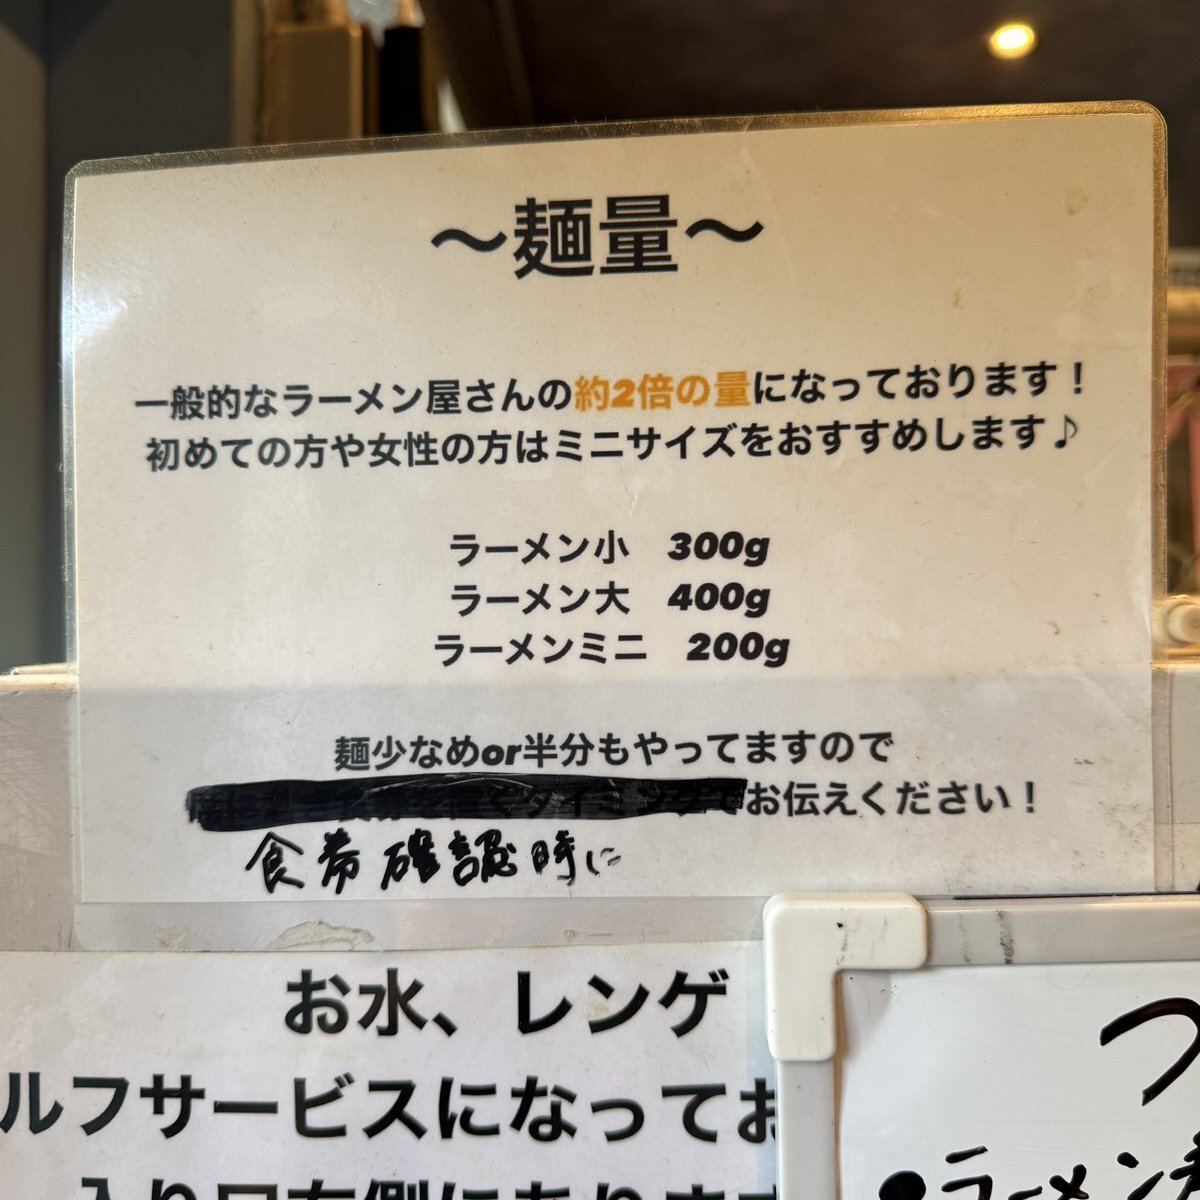 〜麺量〜
一般的なラーメン屋さんの約2倍の量になっております！
初めての方や女性の方はミニサイズをおすすめします♪
ラーメン小 300g
ラーメン大 400g
ラーメンミニ 200g
麺少なめor半分もやってますので
お伝えください！
食券確認時に
お水、レンゲ
ルフサービスになってお
入り口左側にあります
つ
●ラーメン